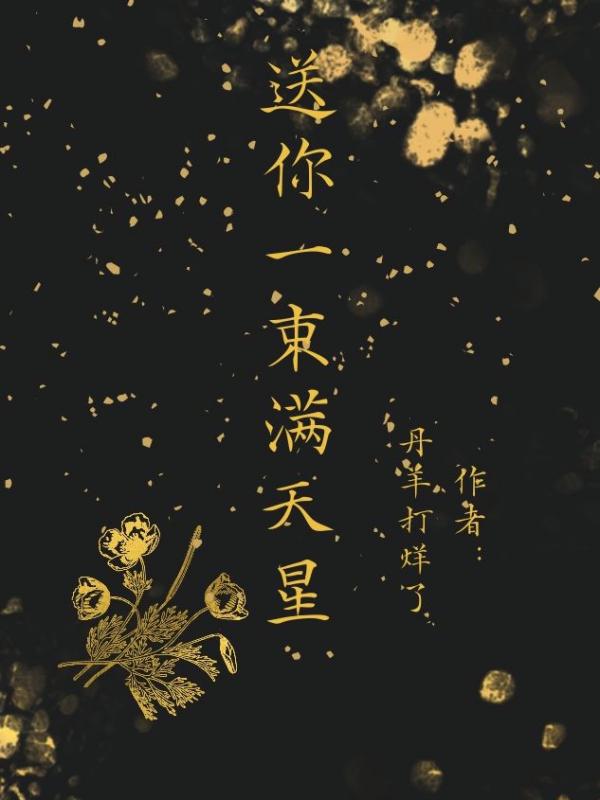 送你一束满天星
作者：
丹羊打烊了